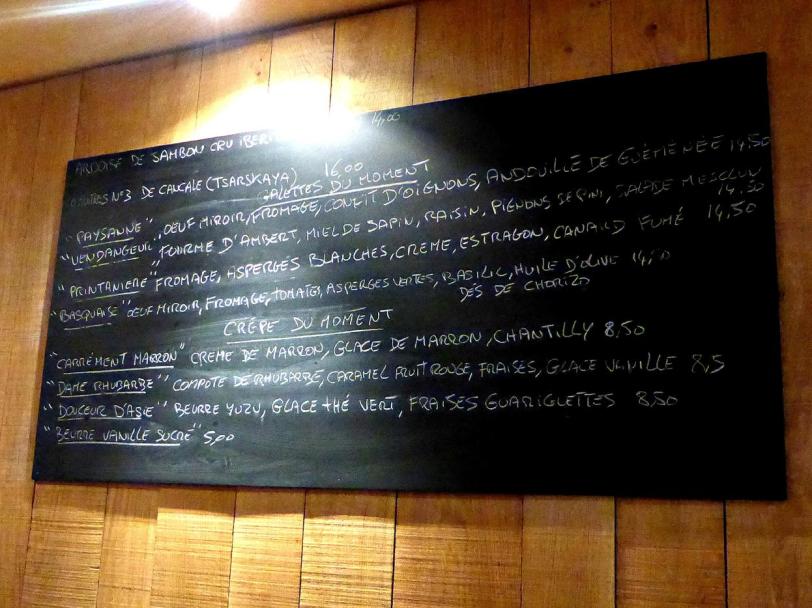 ARDOISE DE JAMBON CRU IBERI 14,00
HUITRES N°3 DE CANCALE (TSARSKAYA) 16,00
GALETTES DU MOMENT
"PAYSANNE" OEUF MIROIR, FROMAGE, CONFIT D'OIGNONS, ANDOUILLE DE GUÉMENÉE 14,50
"VENDANGEUR" FOURME D'AMBERT, MIEL DE SAPIN, RAISIN, PIGNONS DE PIN, SALADE MESCLUN 14,50
"PRINTANIERE" FROMAGE, ASPERGES BLANCHES, CREME, ESTRAGON, CANARD FUMÉ 14,50
"BASQUAISE" OEUF MIROIR, FROMAGE, TOMATES, ASPERGES VERTES, BASILIC, HUILE D'OLIVE
DÉS DE CHORIZO
CRÊPE DU MOMENT
"CARRÉMENT MARRON" CREME DE MARRON, GLACE DE MARRON, CHANTILLY 8,50
"DAME RHUBARBE" COMPOTE DE RHUBARBE, CARAMEL FRUIT ROUGE, FRAISES, GLACE VANILLE 8,5
"DOUCEUR D'ASIE" BEURRE YUZU, GLACE THÉ VERT, FRAISES GUARIGLETTES 8,50
"BEURRE VANILLE SUCRÉ" 5,00